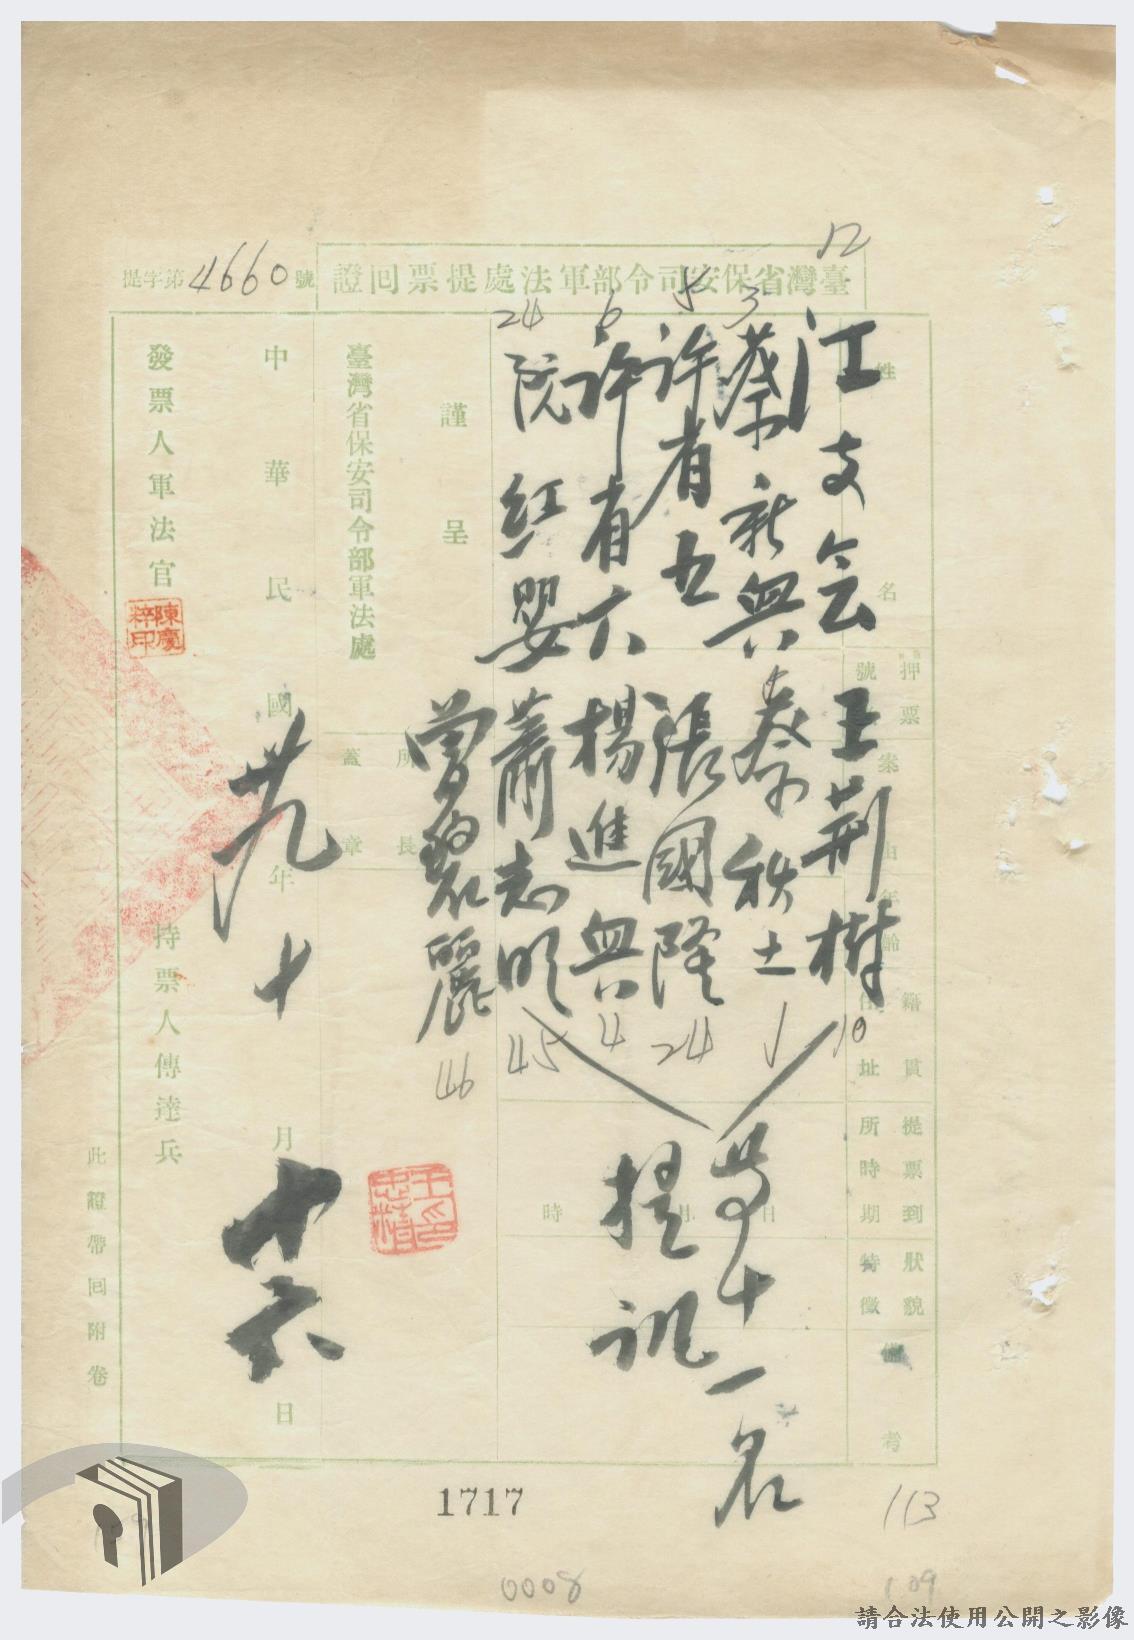 臺灣省保安司令部軍法處提票回證
提字第4660號
姓名
押票號
案由
年齡
籍貫
住址
提票到所時期
狀貌特徵
備考
12
江支会 王荊樹
10
3
蔡新興 蔡秩土
1
5
許有五 張國隆
24
6
許有六 楊進興
4
24
阮紅嬰 蕭志明
45
曾碧麗
46
等十一名
提訊
日
月
時
謹呈
臺灣省保安司令部軍法處
所長
蓋章
中華民國卅九年十月十六日
發票人軍法官
陳慶粹印
持票人傳達兵
此證帶回附卷
1717
113
0008
109
請合法使用公開之影像